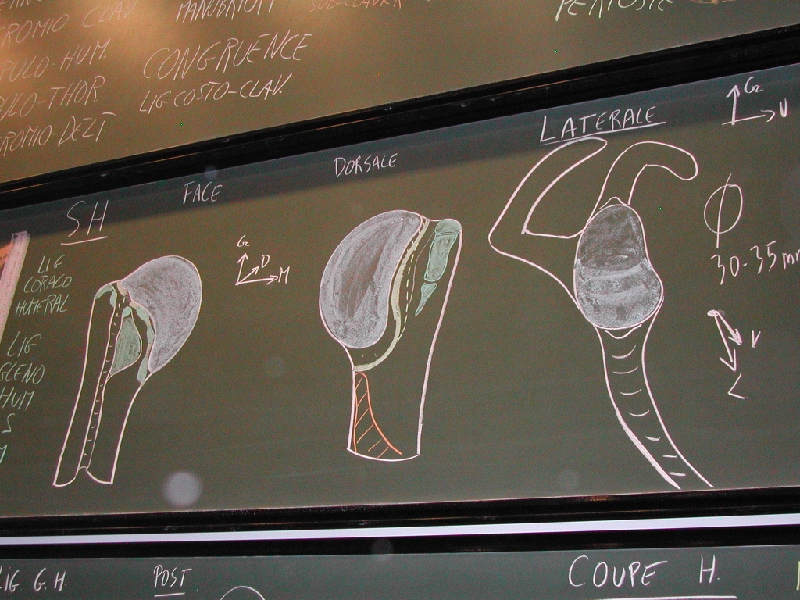 MANUBRIUM SUB-CLAVIER
PERIOSTE
ROMIO CLAV
PULO-HUM. CONGRUENCE
PULO-THOR LIG COSTO-CLAV.
ROMIO DELT
LATERALE
DORSALE
FACE
SH
LIG
CORACO
HUMERAL
LIG
GLENO
HUM
S
D
M
V
Φ
30-35 mm
V
L
LIG G.H
POST.
COUPE H.